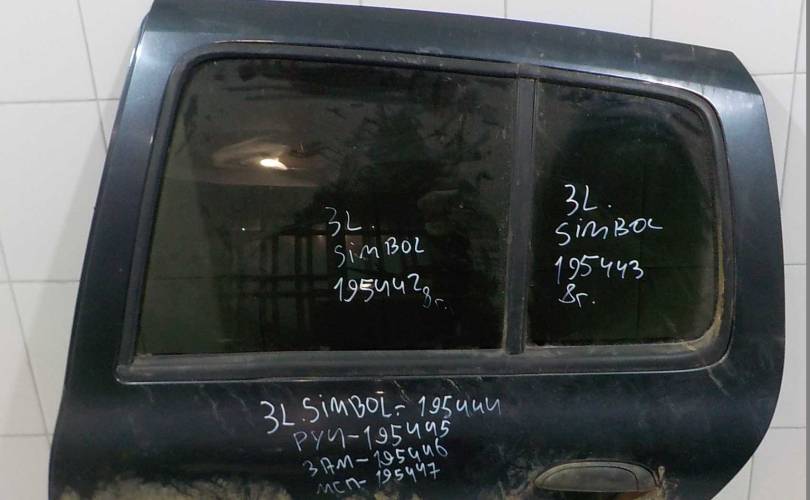 3L.
SIMBOL
195442
8г.
3L.
SIMBOL
195443
8г.
3L. SIMBOL - 195444
РУЧ-195445
ЗАМ-195446
МСП-195447